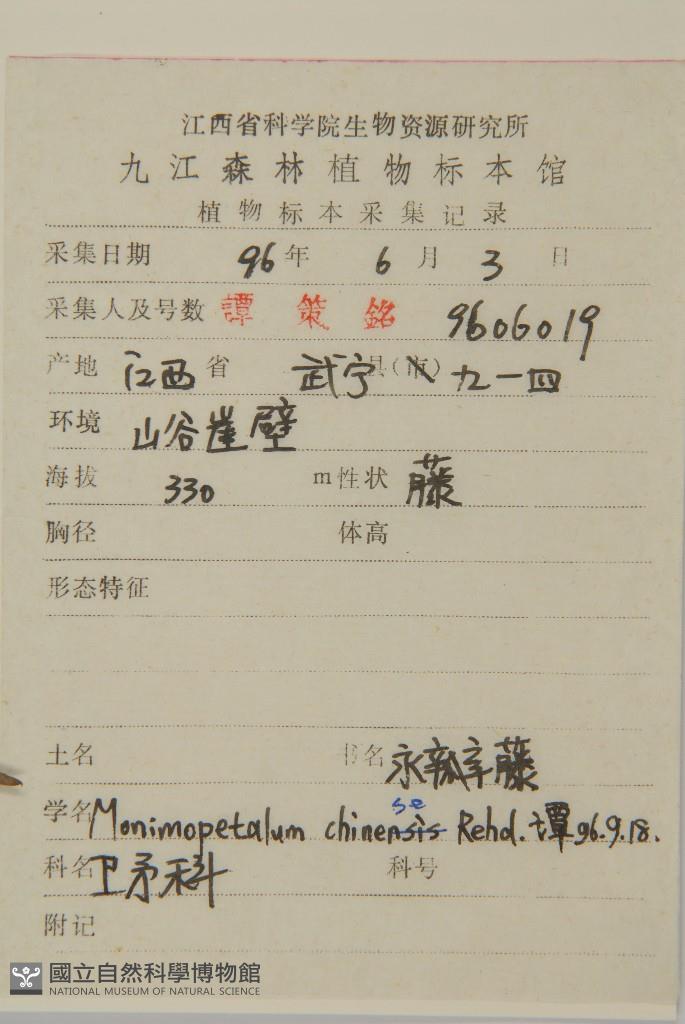 江西省科学院生物资源研究所
九江森林植物标本馆
植物标本采集记录
采集日期 96年 6月 3日
采集人及号数 譚策銘 9606019
产地 江西省 武宁县(市) 九一四
环境 山谷崖壁
海拔 330 m 性状 藤
胸径 体高
形态特征
土名 书名 永瓣藤
学名 Monimopetalum chinensis se Rehd. 谭 96.9.18.
科名 卫矛科 科号
附记
國立自然科學博物館
NATIONAL MUSEUM OF NATURAL SCIENCE